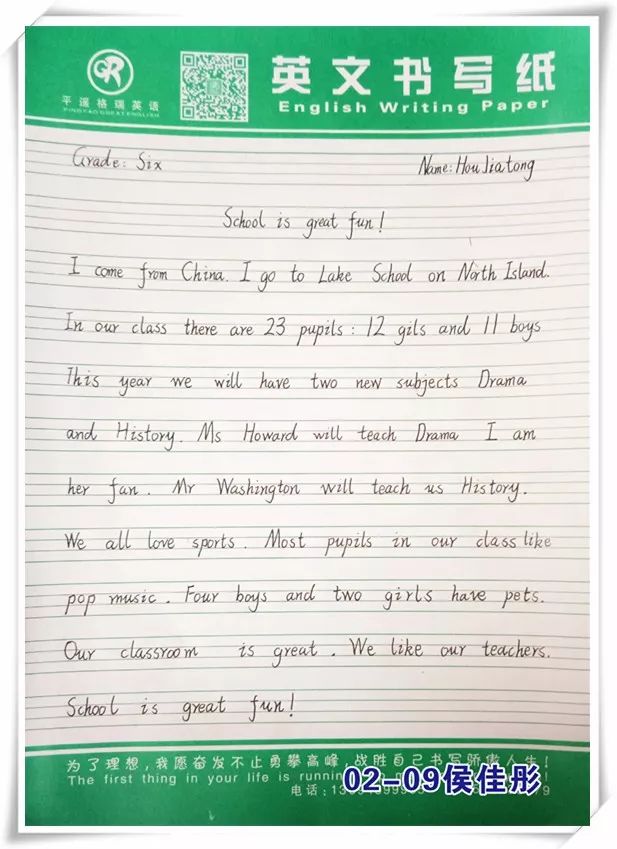 GR
平遥格瑞英语
PINGYAO GREAT ENGLISH
英文书写纸
English Writing Paper
Grade: Six
Name: Hou Jiatong
School is great fun!
I come from China. I go to Lake School on North Island.
In our class there are 23 pupils: 12 gils and 11 boys
This year we will have two new subjects Drama
and History. Ms Howard will teach Drama I am
her fan. Mr Washington will teach us History.
We all love sports. Most pupils in our class like
pop music. Four boys and two girls have pets.
Our classroom is great. We like our teachers.
School is great fun!
为了理想，我愿奋发不止勇攀高峰，战胜自己书写骄傲人生！
The first thing in your life is running
电话：
02-09侯佳彤